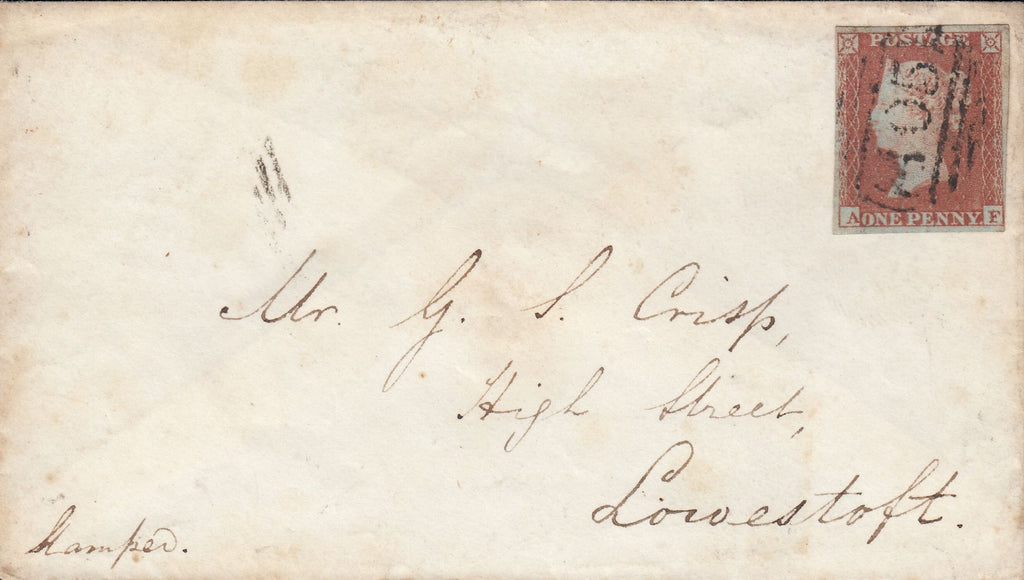 POSTAGE
A ONE PENNY F
Mr. G. S. Crisp,
High Street,
Lowestoft.
Stamped.